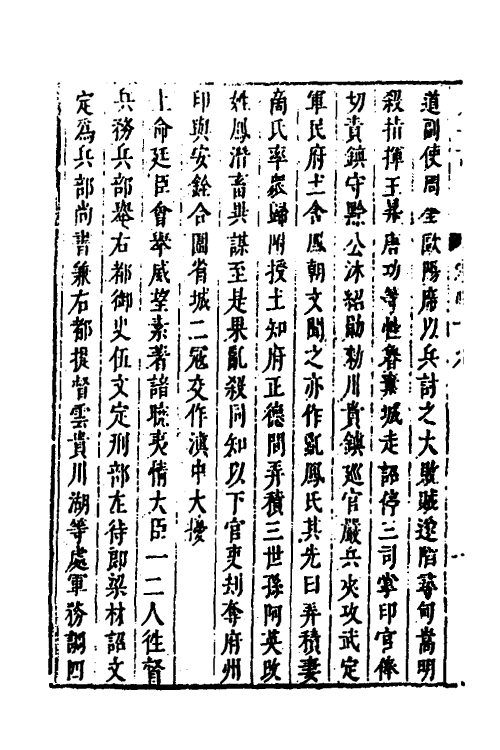 道副使周奎歐陽席以兵討之大敗賊遂陷尋甸嵩明
殺指揮王昇唐功等惟魯棄城走詔停三司掌印官俸
切責鎮守黔公沐紹勛勑川貴鎮巡官嚴兵夾攻武定
軍民府土舍鳳朝文聞之亦作亂鳳氏其先曰弄積妻
商氏率衆歸附授土知府正德間弄積三世孫阿英改
姓鳳潛畜異謀至是果亂殺同知以下官吏刦奪府州
印與安銓合圍省城二冦交作滇中大擾
上命廷臣會舉威望素著諸曉夷情大臣一二人徃督
兵務兵部舉右都御史伍文定刑部左侍郎梁材詔文
定爲兵部尚書兼右都提督雲貴川湖等處軍務調四